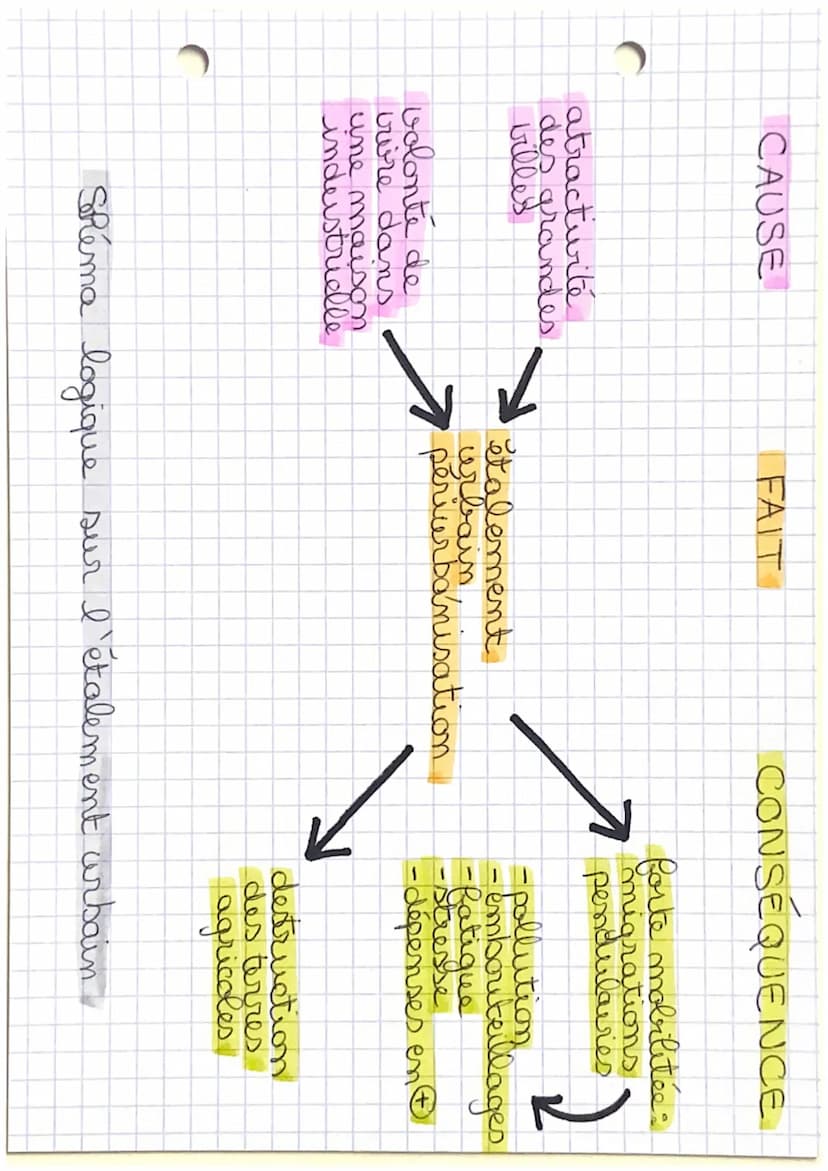 CAUSE
FAIT
CONSÉQUENCE
atractivité
des grandes
villes
volonté de
vivre dans
une maison
industrielle
étalement
urbain
périurbanisation
forte mobilitée:
migrations
pendulaires
- pollution
- embouteillages
- fatigue
- stresse
- dépenses en +
destruction
des terres
agricoles
Shéma logique sur l'étalement urbain